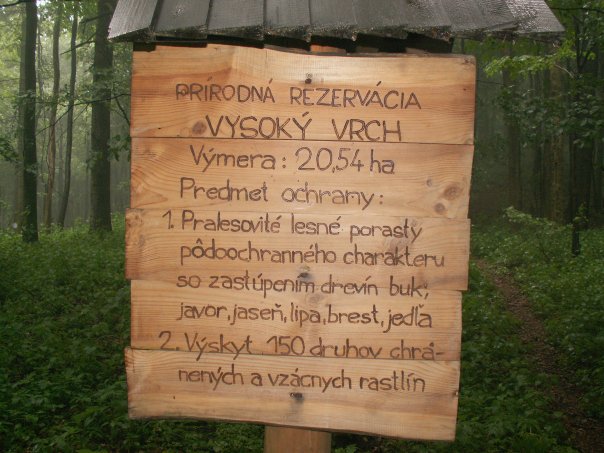 PRÍRODNÁ REZERVÁCIA
VYSOKÝ VRCH
Výmera: 20,54 ha
Predmet ochrany:
1. Pralesovité lesné porasty
pôdoochranného charakteru
so zastúpením drevín buk;
javor, jaseň, lipa, brest, jedľa
2. Výskyt 150 druhov chrá-
nených a vzácnych rastlín